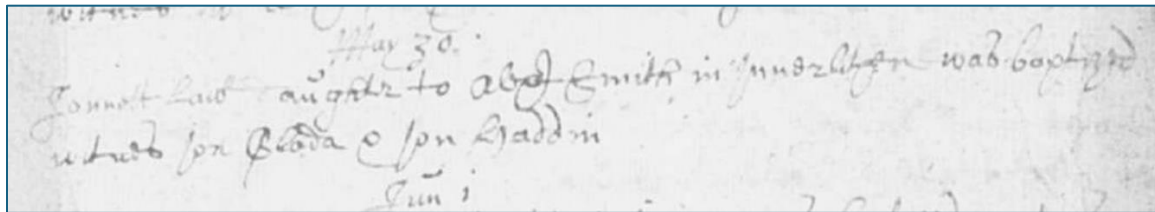 witnes
May 30.
Jonnet law daughter to Abe Smith in Inverlithen was baptized
witnes Jon & Jon Haddin
Jun i